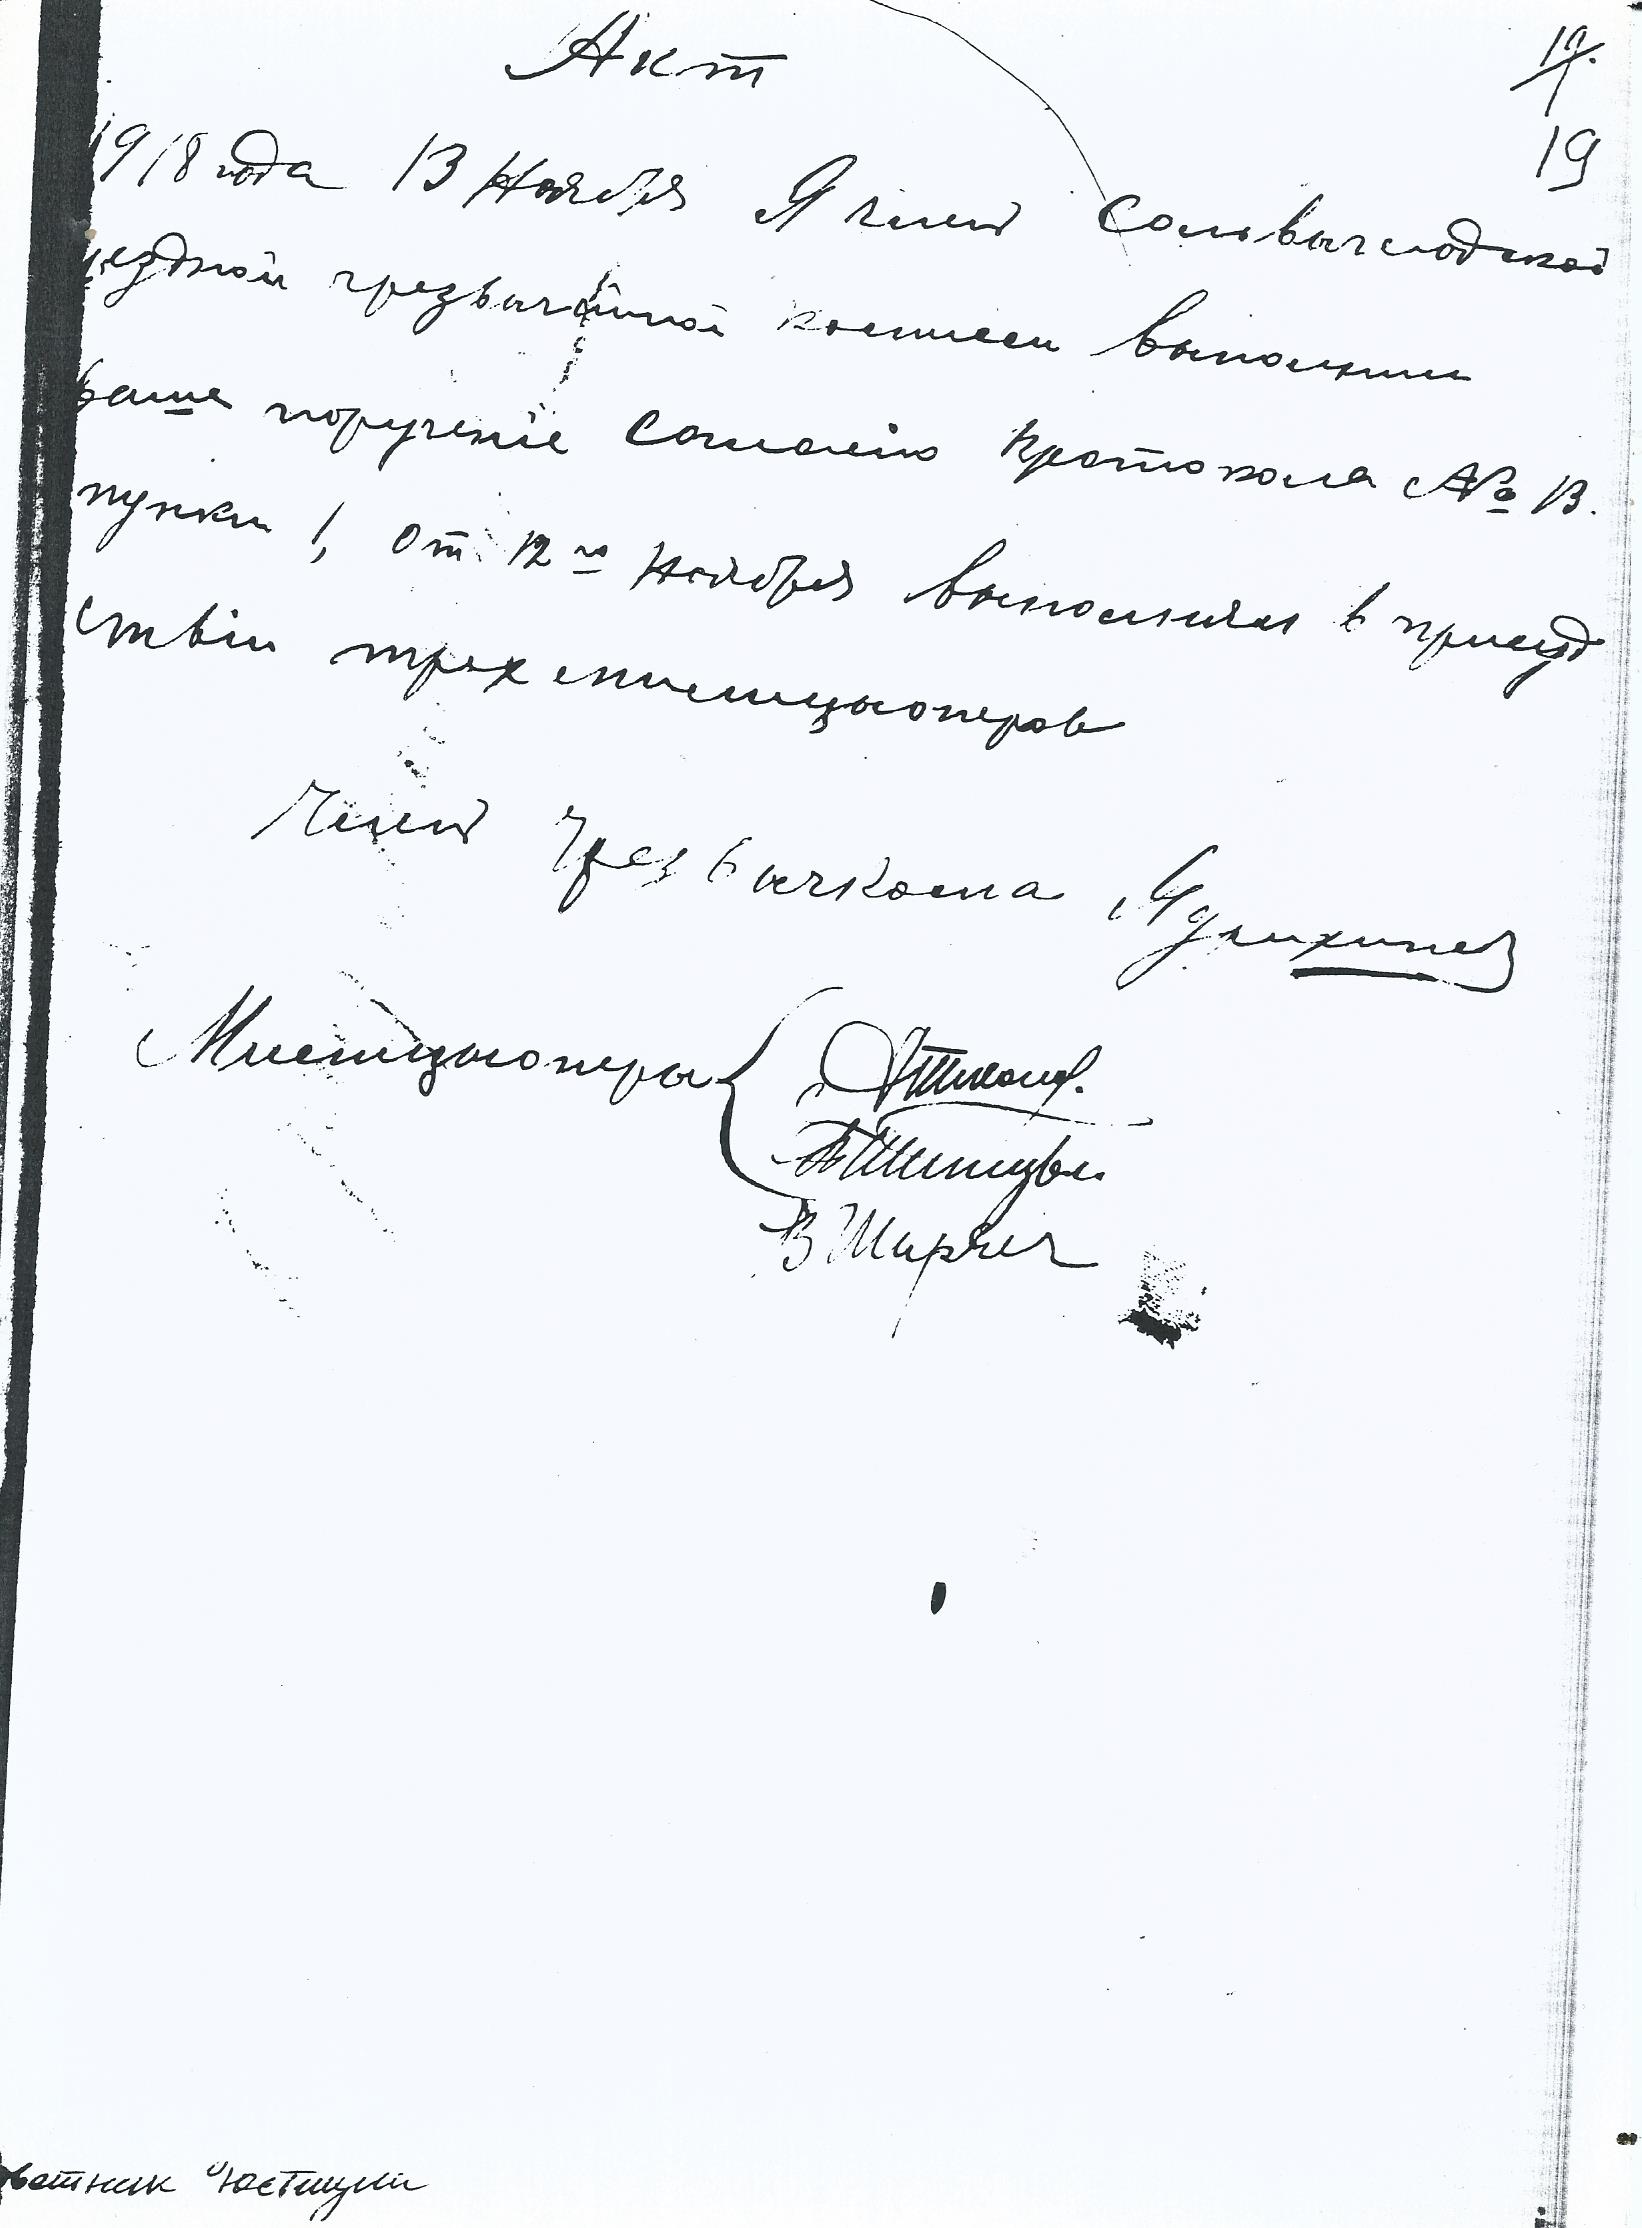 Акт
19
19
1918 года 13 Ноября Я член Сольвычегодской
уездной чрезвычайной комисеи выполнил
ваше поручение Согласно протокола № 13.
пункта 1, от 12го Ноября выполнял в присуд
ствіи трех милицыонеров
Член Чрезвычкома
Милицыонеры
В Ширяев
ветник юстиции